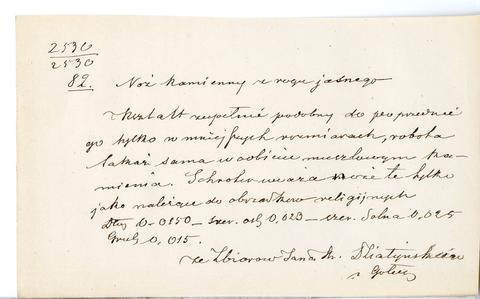 2530
2530
82.
Nóż kamienny z rogu jasnego
Kształt zupełnie podobny do poprzednie
go tylko w mniejszych rozmiarach, robota
takaż sama w odbiciu muszlowym ka-
mienia. Schroter uważa noże te tylko
jako należące do obrządków religijnych
Dług 0-0150 – szer. od g 0,023 – szer. dolna 0,025
Grub 0,015.
ze Zbiorów Jana Hr. Działyńskiego
z Gołuch